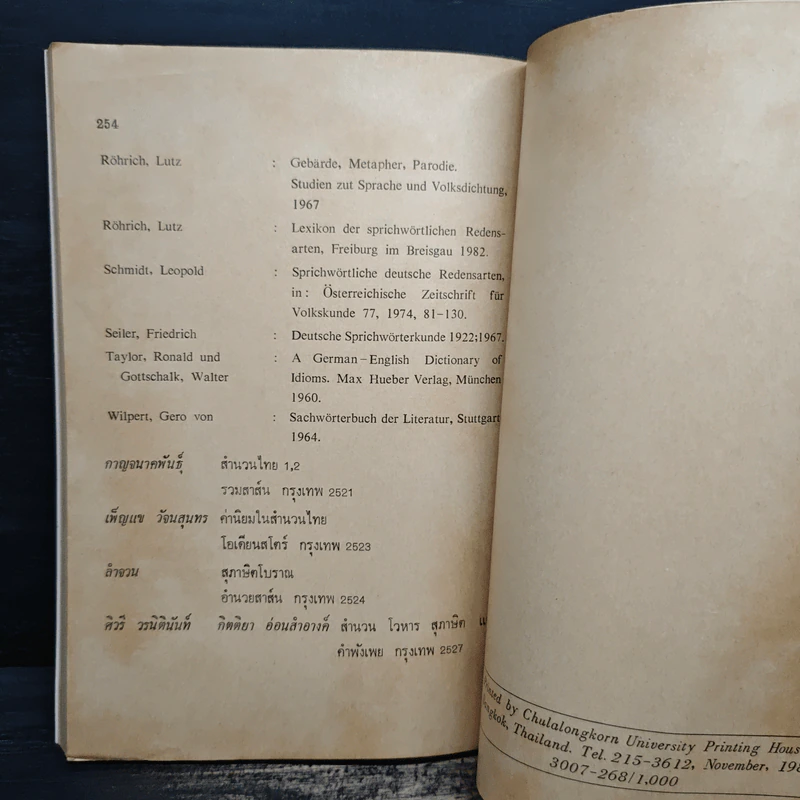 254
Röhrich, Lutz : Gebärde, Metapher, Parodie.
Studien zut Sprache und Volksdichtung,
1967
Röhrich, Lutz : Lexikon der sprichwörtlichen Redens-
arten, Freiburg im Breisgau 1982.
Schmidt, Leopold : Sprichwörtliche deutsche Redensarten,
in: Österreichische Zeitschrift für
Volkskunde 77, 1974, 81-130.
Seiler, Friedrich : Deutsche Sprichwörterkunde 1922;1967.
Taylor, Ronald und : A German-English Dictionary of
Gottschalk, Walter Idioms. Max Hueber Verlag, München
1960.
Wilpert, Gero von : Sachwörterbuch der Literatur, Stuttgart
1964.
กาญจนาคพันธุ์ สำนวนไทย 1,2
รวมสาส์น กรุงเทพ 2521
เพ็ญแข วัจนสุนทร ค่านิยมในสำนวนไทย
โอเดียนสโตร์ กรุงเทพ 2523
ลำจวน สุภาษิตโบราณ
อำนวยสาส์น กรุงเทพ 2524
ศิวรี วรนิตินันท์ กิตติยา อ่อนสำอางค์ สำนวน โวหาร สุภาษิต
คำพังเพย กรุงเทพ 2527
by Chulalongkorn University Printing
Thailand. Tel. 215-3612, November,
3007-268/1,000